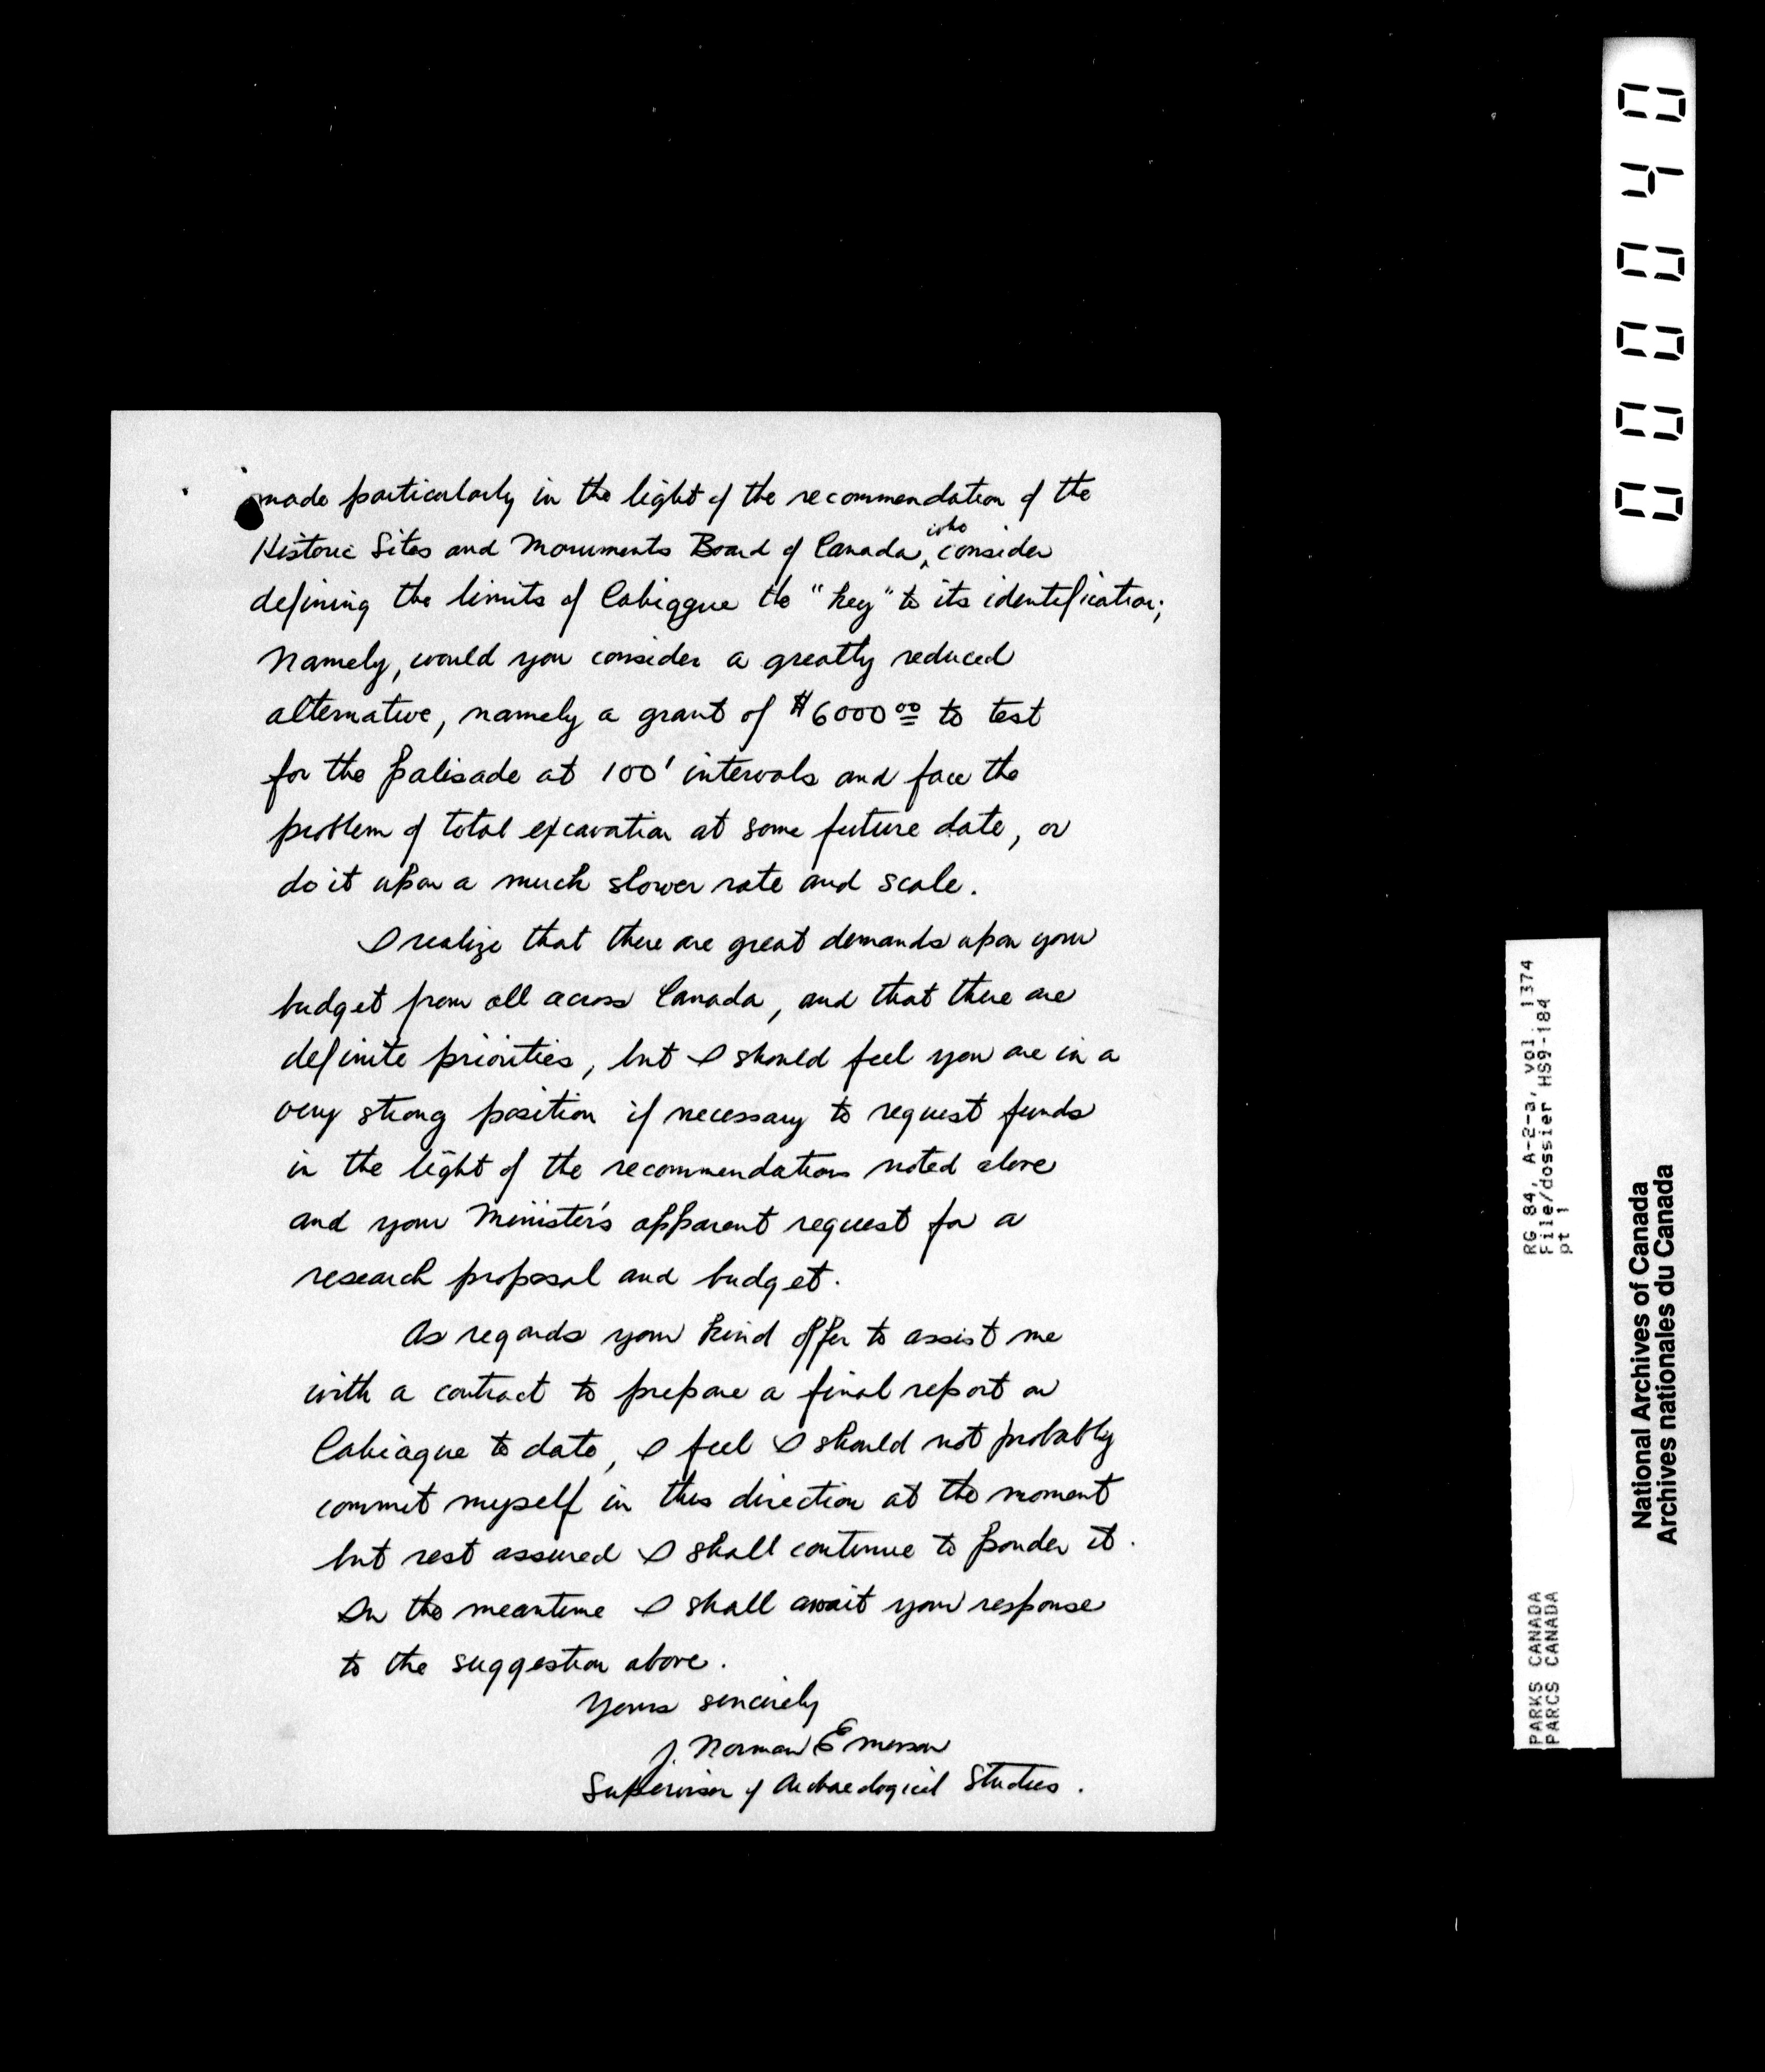 made particularly in the light of the recommendation of the
Historic Sites and Monuments Board of Canada, who consider
defining the limits of Cahiggue the "key" to its identification;
Namely, would you consider a greatly reduced
alternative, namely a grant of $6000 00 to test
for the palisade at 100' intervals and face the
problem of total excavation at some future date, or
do it upon a much slower rate and scale.
I realize that there are great demands upon your
budget from all across Canada, and that there are
definite priorities, but I should feel you are in a
very strong position if necessary to request funds
in the light of the recommendations noted above
and your Minister's apparent request for a
research proposal and budget.
As regards your kind offer to assist me
with a contract to prepare a final report on
Cahiague to date, I feel I should not probably
commit myself in this direction at the moment
but rest assured I shall continue to ponder it.
In the meantime I shall await your response
to the suggestion above.
Yours sincerely
J. Norman Emerson
Supervisor of Archaeological Studies.
040000
RG 84, A-2-a, vol. 1374
File/dossier HS9-184
pt 1
PARKS CANADA
PARCS CANADA
National Archives of Canada
Archives nationales du Canada